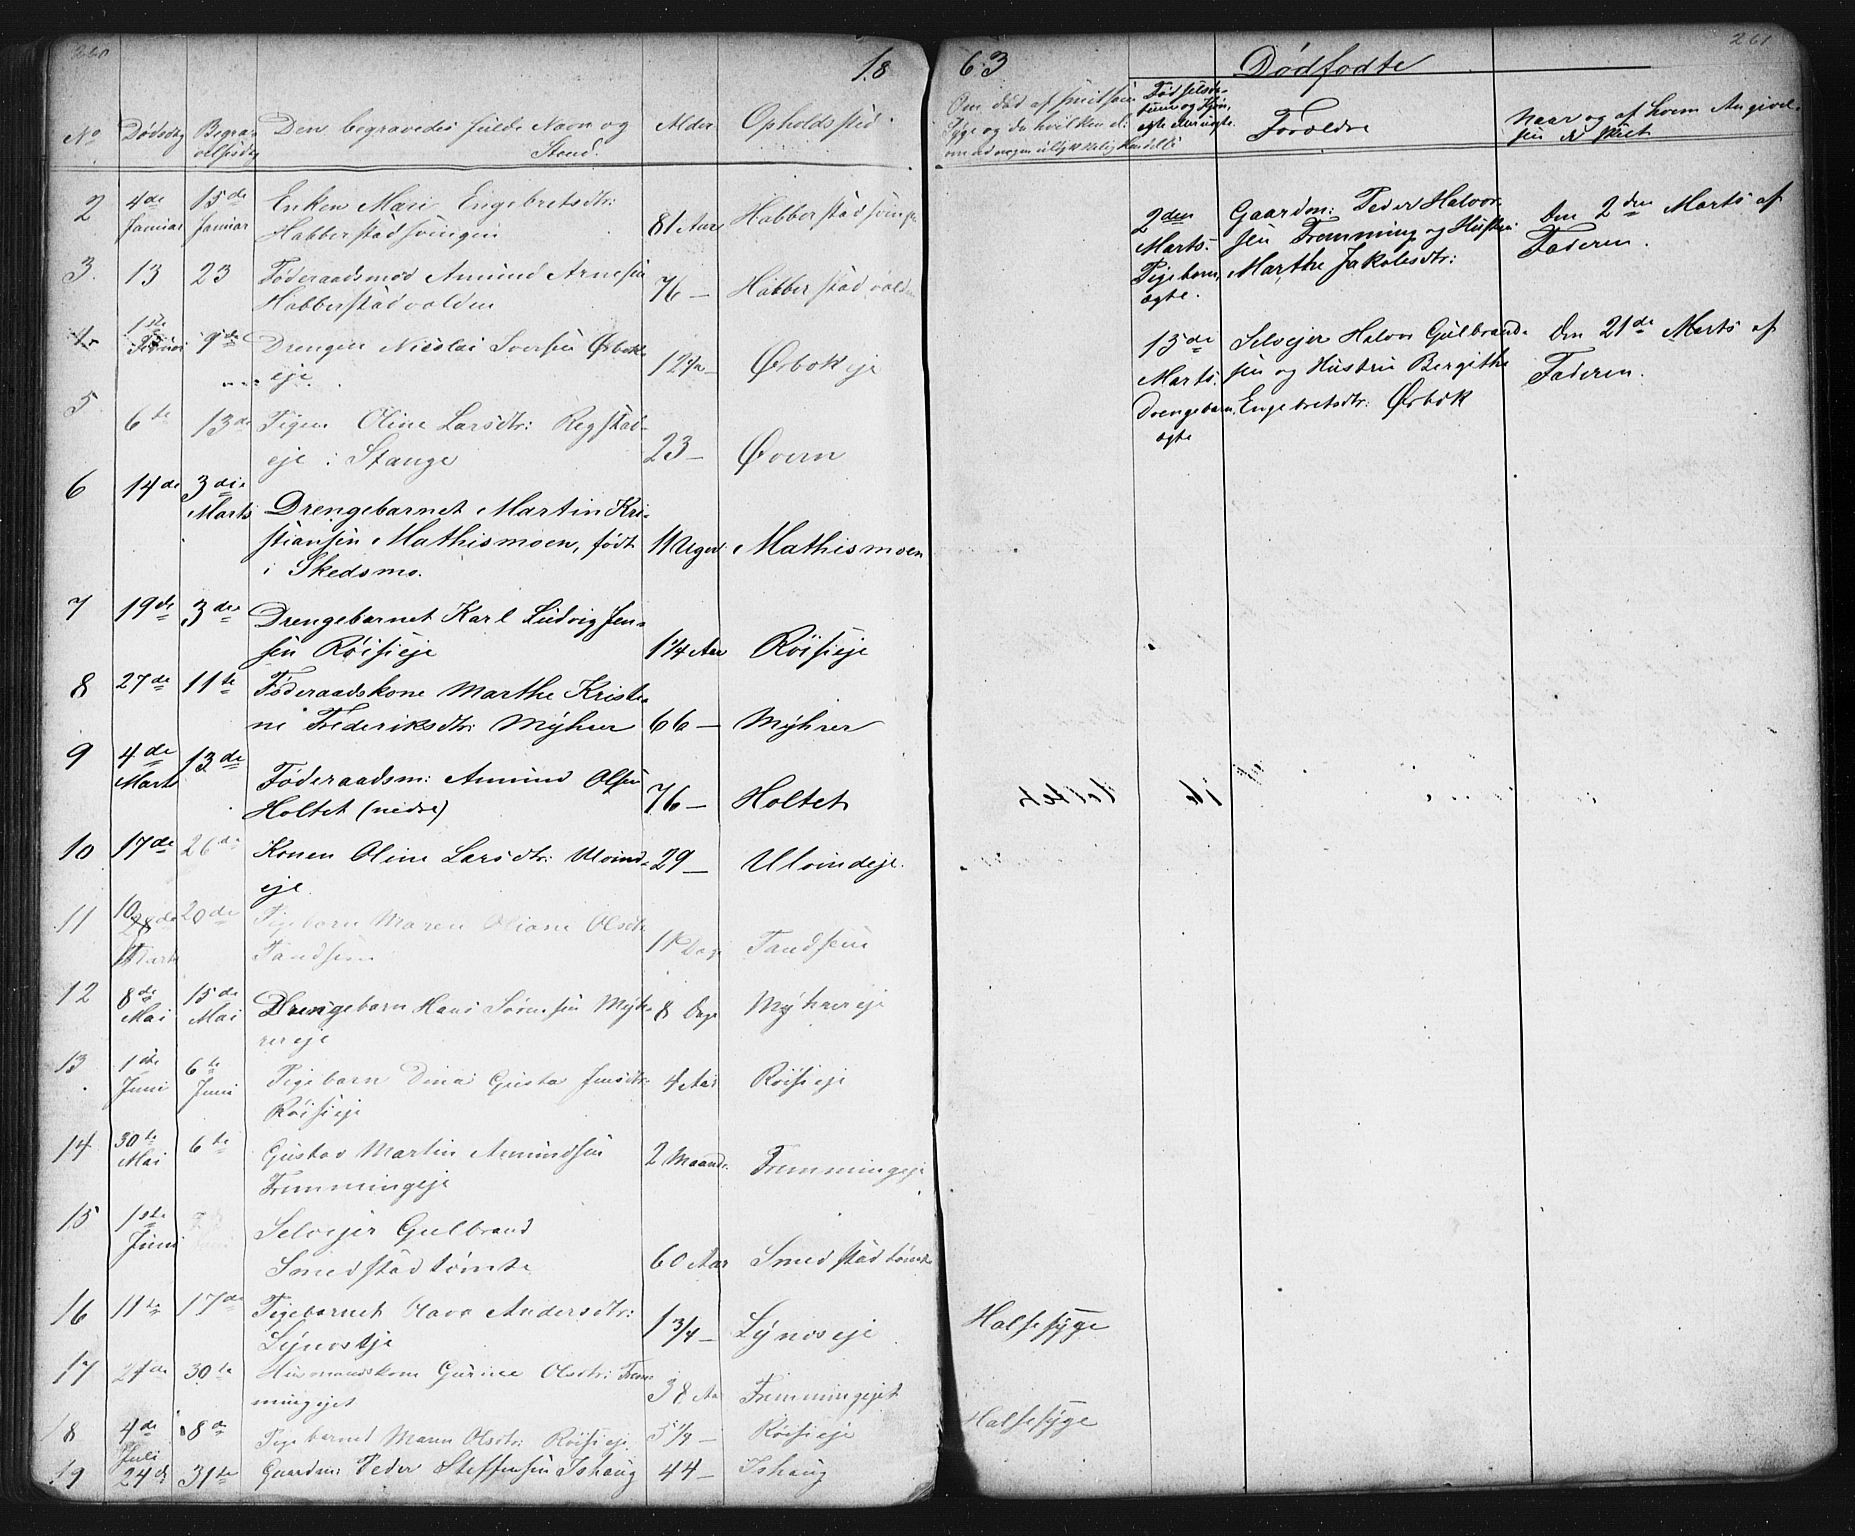 260
18
No Dødsdag Begravelsesdag Den begravedes fulde Navn og Stand. Alder Opholdssted
2 4de Januar 15de Januar Enken Mari Engebretsdtr: Habberstadsvingen 81 Aar Habberstadsvingen
3. 13 23 Føderaadsmnd Amund Arnesen Habberstadvolden 76 — Habberstadvolden
4. 1ste Februar 9de Drengen Nicolai Iversen Ørbokeje. 12 — Ørbokeje
5 6te 13de Pigen Oline Larsdtr: Regstadeje i Stange 23 — Øvern
6 14de 3die Marts Drengebarnet Martin Kristiansen Mathismoen, født i Skedsmo. 11 Uger Mathismoen
7 19de 3die Drengebarnet Karl Ludvig Jensen Röisieje 1 1/4 Aar Röisieje
8 27de 11te Føderaadskone Marthe Kristine Frederiksdtr: Myhrer 66 — Myhrer
9 4de Marts 13de Føderaadsm: Amund Olsen Holtet (nedre) 76 — Holtet
10 17de 26de Konen Oline Larsdtr: Ulvindeje. 29 — Ulvindeje.
11 10 Marts 20de Pigebarn Maren Oliane Olsdtr Tandsem 11 Dage Tandsem
12 8de Mai 15de Mai Drengebarn Hans Sörensen Myhrereje 8 Dage Myhrereje
13 1ste Juni 6te Juni Pigebarn Dina Gusta Jensdtr: Röisieje 4 Aar Röisieje
14 30te Mai 6te Gustav Martin Amundsen Fremmingeje 2 Maaneder Fremmingeje
15 1ste Juni Selvejer Gulbrand Smedstadtömte 60 Aar Smedstadtömte
16 11te 17de Pigebarnet Oava Andersdtr: Lynoseje 1 3/4 — Lynoseje
17 21de 30te Husmandskone Gurine Olsdtr: Fremmingejet 38 Aar Fremmingejet
18 4de Juli 8de Pigebarnet Maren Olsdtr: Röisieje 5 1/4 — Röisieje
19 24de 31te Gaardm: Peder Steffensen Ishaug 44 — Ishaug
63
261
Dødfødte
Om død af smitsom Syge og da hvilken el:
Fødselsdatum og Kjön, ægte eller uægte.
Forældre
Naar og af hvem Angivelsen er skeet
2den Marts. Pigebarn, ægte. Gaardm: Peder Halvorsen Fremming og Hustru Marthe Jakobsdtr: Den 2den Marts af Faderen.
13de Marts. Drengebarn, ægte Selvejer Halvor Gulbrandsen og Hustru Bergithe Engebretsdtr: Ørbok Den 21de Marts af Faderen.
Halssyge
Halssyge